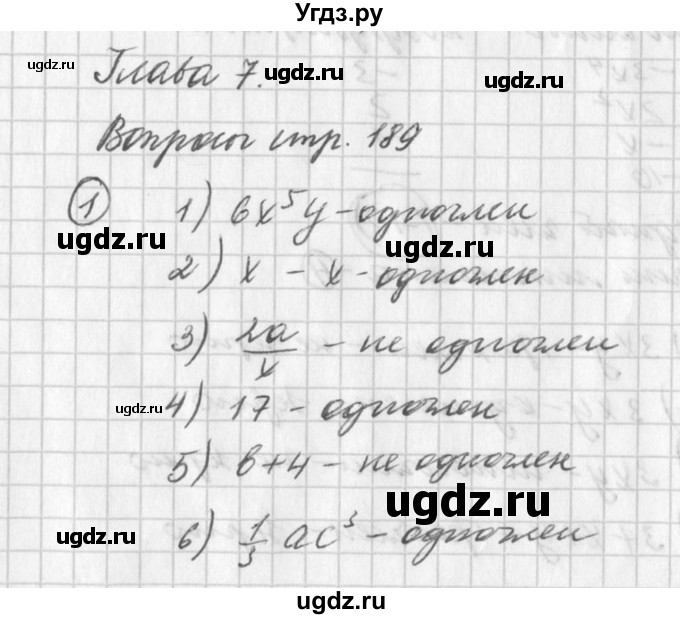 Угдз.ру
Глава 7.
Вопросы стр. 189
1 1) 6x⁵y - одночлен
2) x - x - одночлен
3) 2a/x - не одночлен
4) 17 - одночлен
5) в+4 - не одночлен
6) 1/3 ac³ - одночлен
ugdz.ru
ugdz.ru
ugdz.ru
ugdz.ru
ugdz.ru
ugdz.ru
ugdz.ru
ugdz.ru
ugdz.ru
ugdz.ru